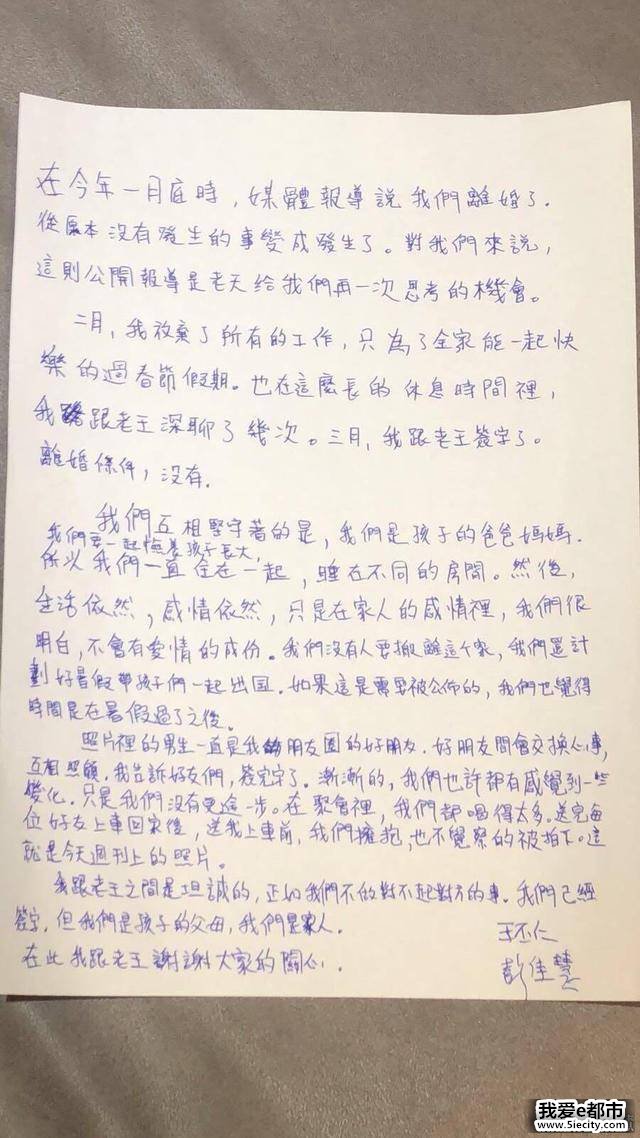 在今年一月底時，媒體報導說我們離婚了.
從原本沒有發生的事變成發生了。對我們來說，
這則公開報導是老天給我們再一次思考的機會。
二月，我放棄了所有的工作，只為了全家能一起快
樂的過春節假期。也在這麼長的休息時間裡，
我跟老王深聊了幾次。三月，我跟老王簽字了。
離婚條件，沒有.
我們互相堅守著的是，我們是孩子的爸爸媽媽.
我們要一起陪着孩子長大，
所以我們一直住在一起，睡在不同的房間。然後，
生活依然，感情依然，只是在家人的感情裡，我們很
明白，不會有愛情的成份。我們沒有人要搬離這个家，我們還計
劃好暑假帶孩子們一起出国。如果這是需要被公佈的，我們也覺得
時間是在暑假過了之後。
照片裡的男生一直是我朋友圈的好朋友.好朋友間會交換心事,
互相照顧.我告訴好友們，簽完字了。漸漸的，我們也許都有感覺到一些
變化.只是我們沒有更進一步。在聚會裡，我們都喝得太多。送完每
位好友上車回家後，送我上車前，我們擁抱,也不覺察的被拍下。這
就是今天週刊上的照片。
我跟老王之間是坦誠的，正如我們不做對不起對方的事。我們已經
簽字，但我們是孩子的父母，我們是家人.
王丕仁
在此我跟老王謝謝大家的關心.
彭佳慧
我爱e都市
www.5iecity.com